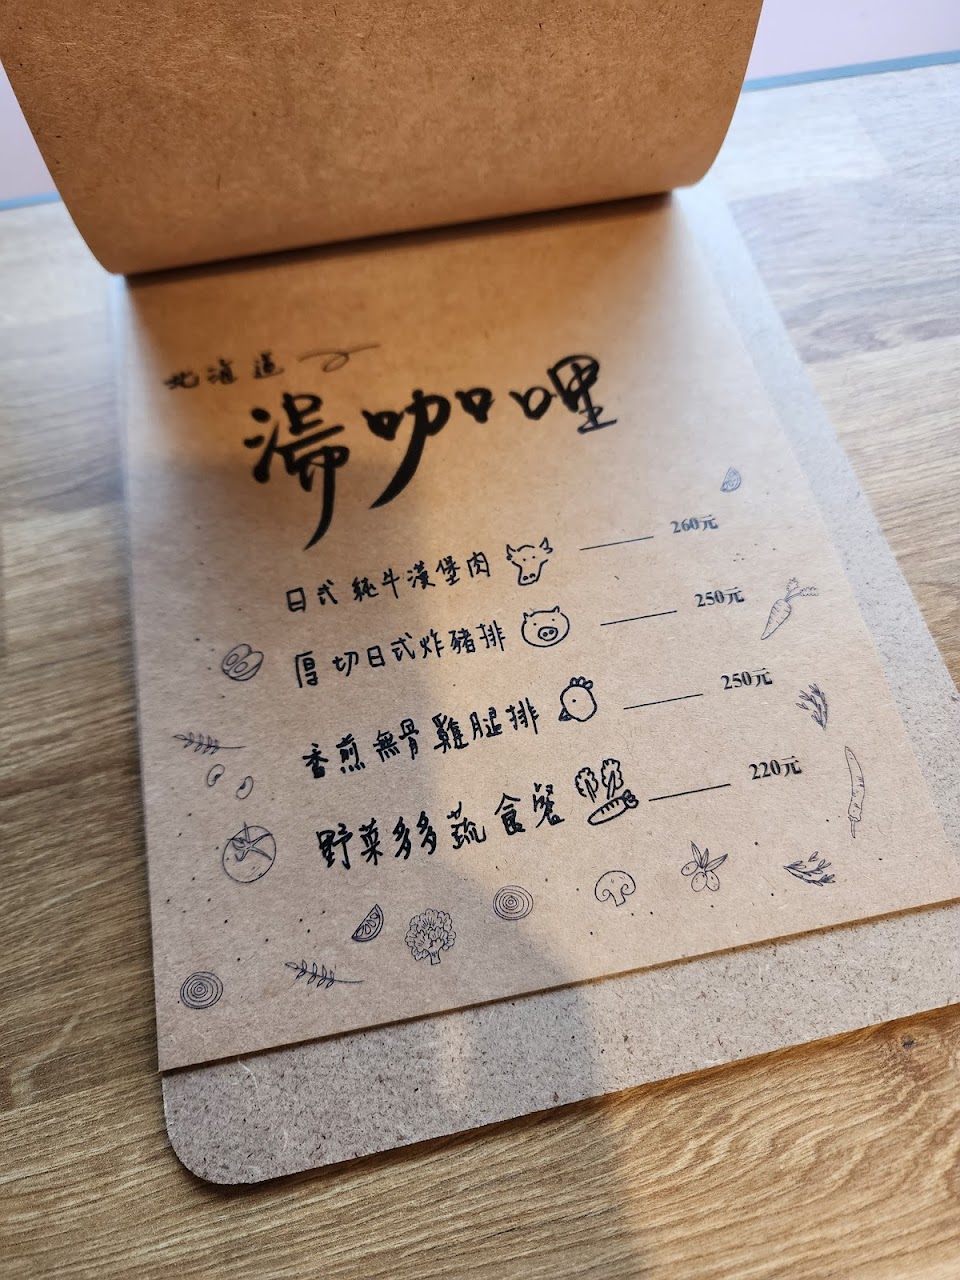 北海道
湯咖哩
日式純牛漢堡肉 260元
厚切日式炸豬排 250元
香煎無骨雞腿排 250元
野菜多多蔬食餐 220元